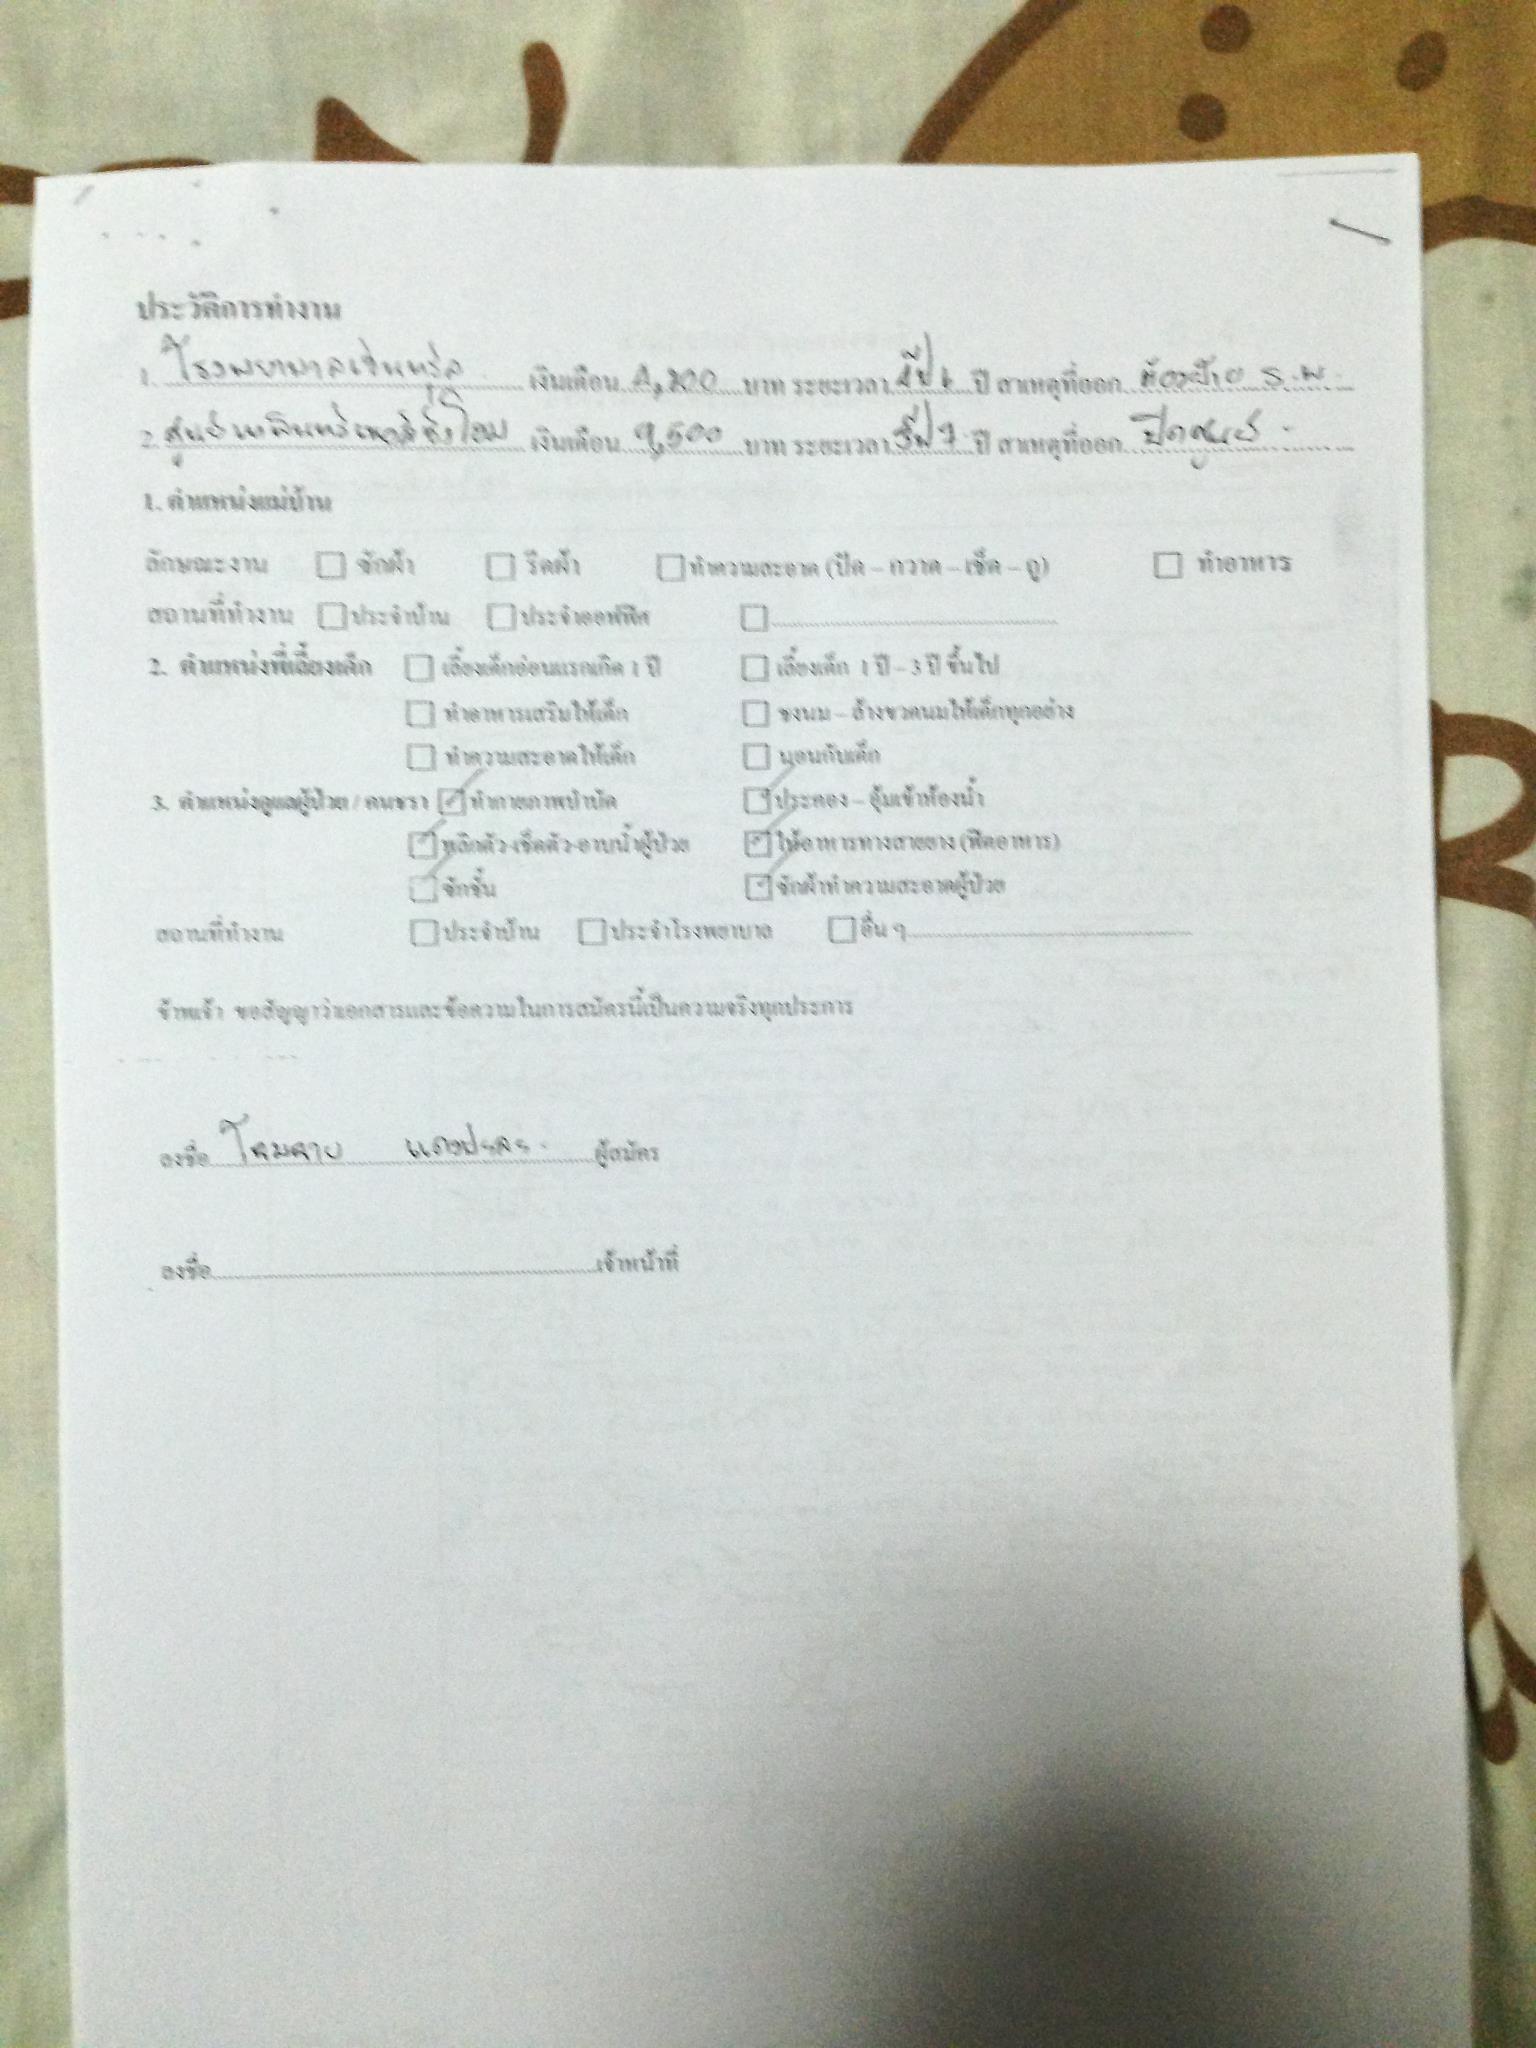 ประวัติการทำงาน
1. โรงพยาบาล เงินเดือน บาท ระยะเวลา ปี สาเหตุที่ออก ร.พ.
2. ศูนย์ เงินเดือน 9,500 บาท ระยะเวลา ปี สาเหตุที่ออก ปิดศูนย์
1. ตำแหน่งแม่บ้าน
ลักษณะงาน ซักผ้า รีดผ้า ทำความสะอาด (ปัด – กวาด – เช็ด – ถู) ทำอาหาร
สถานที่ทำงาน ประจำบ้าน ประจำออฟฟิศ
2. ตำแหน่งพี่เลี้ยงเด็ก เลี้ยงเด็กอ่อนแรกเกิด 1 ปี เลี้ยงเด็ก 1 ปี – 3 ปี ขึ้นไป
ทำอาหารเสริมให้เด็ก ชงนม – ล้างขวดนมให้เด็กทุกอย่าง
ทำความสะอาดให้เด็ก นอนกับเด็ก
3. ตำแหน่งดูแลผู้ป่วย / คนชรา ทำกายภาพบำบัด ประคอง – อุ้มเข้าห้องน้ำ
พลิกตัว-เช็ดตัว-อาบน้ำผู้ป่วย ให้อาหารทางสายยาง (ฟีดอาหาร)
ซักผ้าทำความสะอาดผู้ป่วย
สถานที่ทำงาน ประจำบ้าน ประจำโรงพยาบาล อื่น ๆ
ข้าพเจ้า ขอสัญญาว่าเอกสารและข้อความในการสมัครนี้เป็นความจริงทุกประการ
ลงชื่อ ผู้สมัคร
ลงชื่อ เจ้าหน้าที่